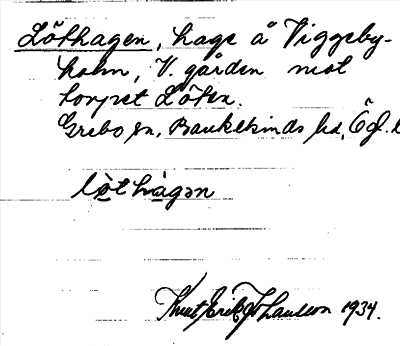 Löthagen, hage å Viggeby-
holm, V. gården mot
torpet Löten.
Grebo sn, Bankekinds hd, Ög. l
lo̱t ha̱gən
Knut Erik 1934.